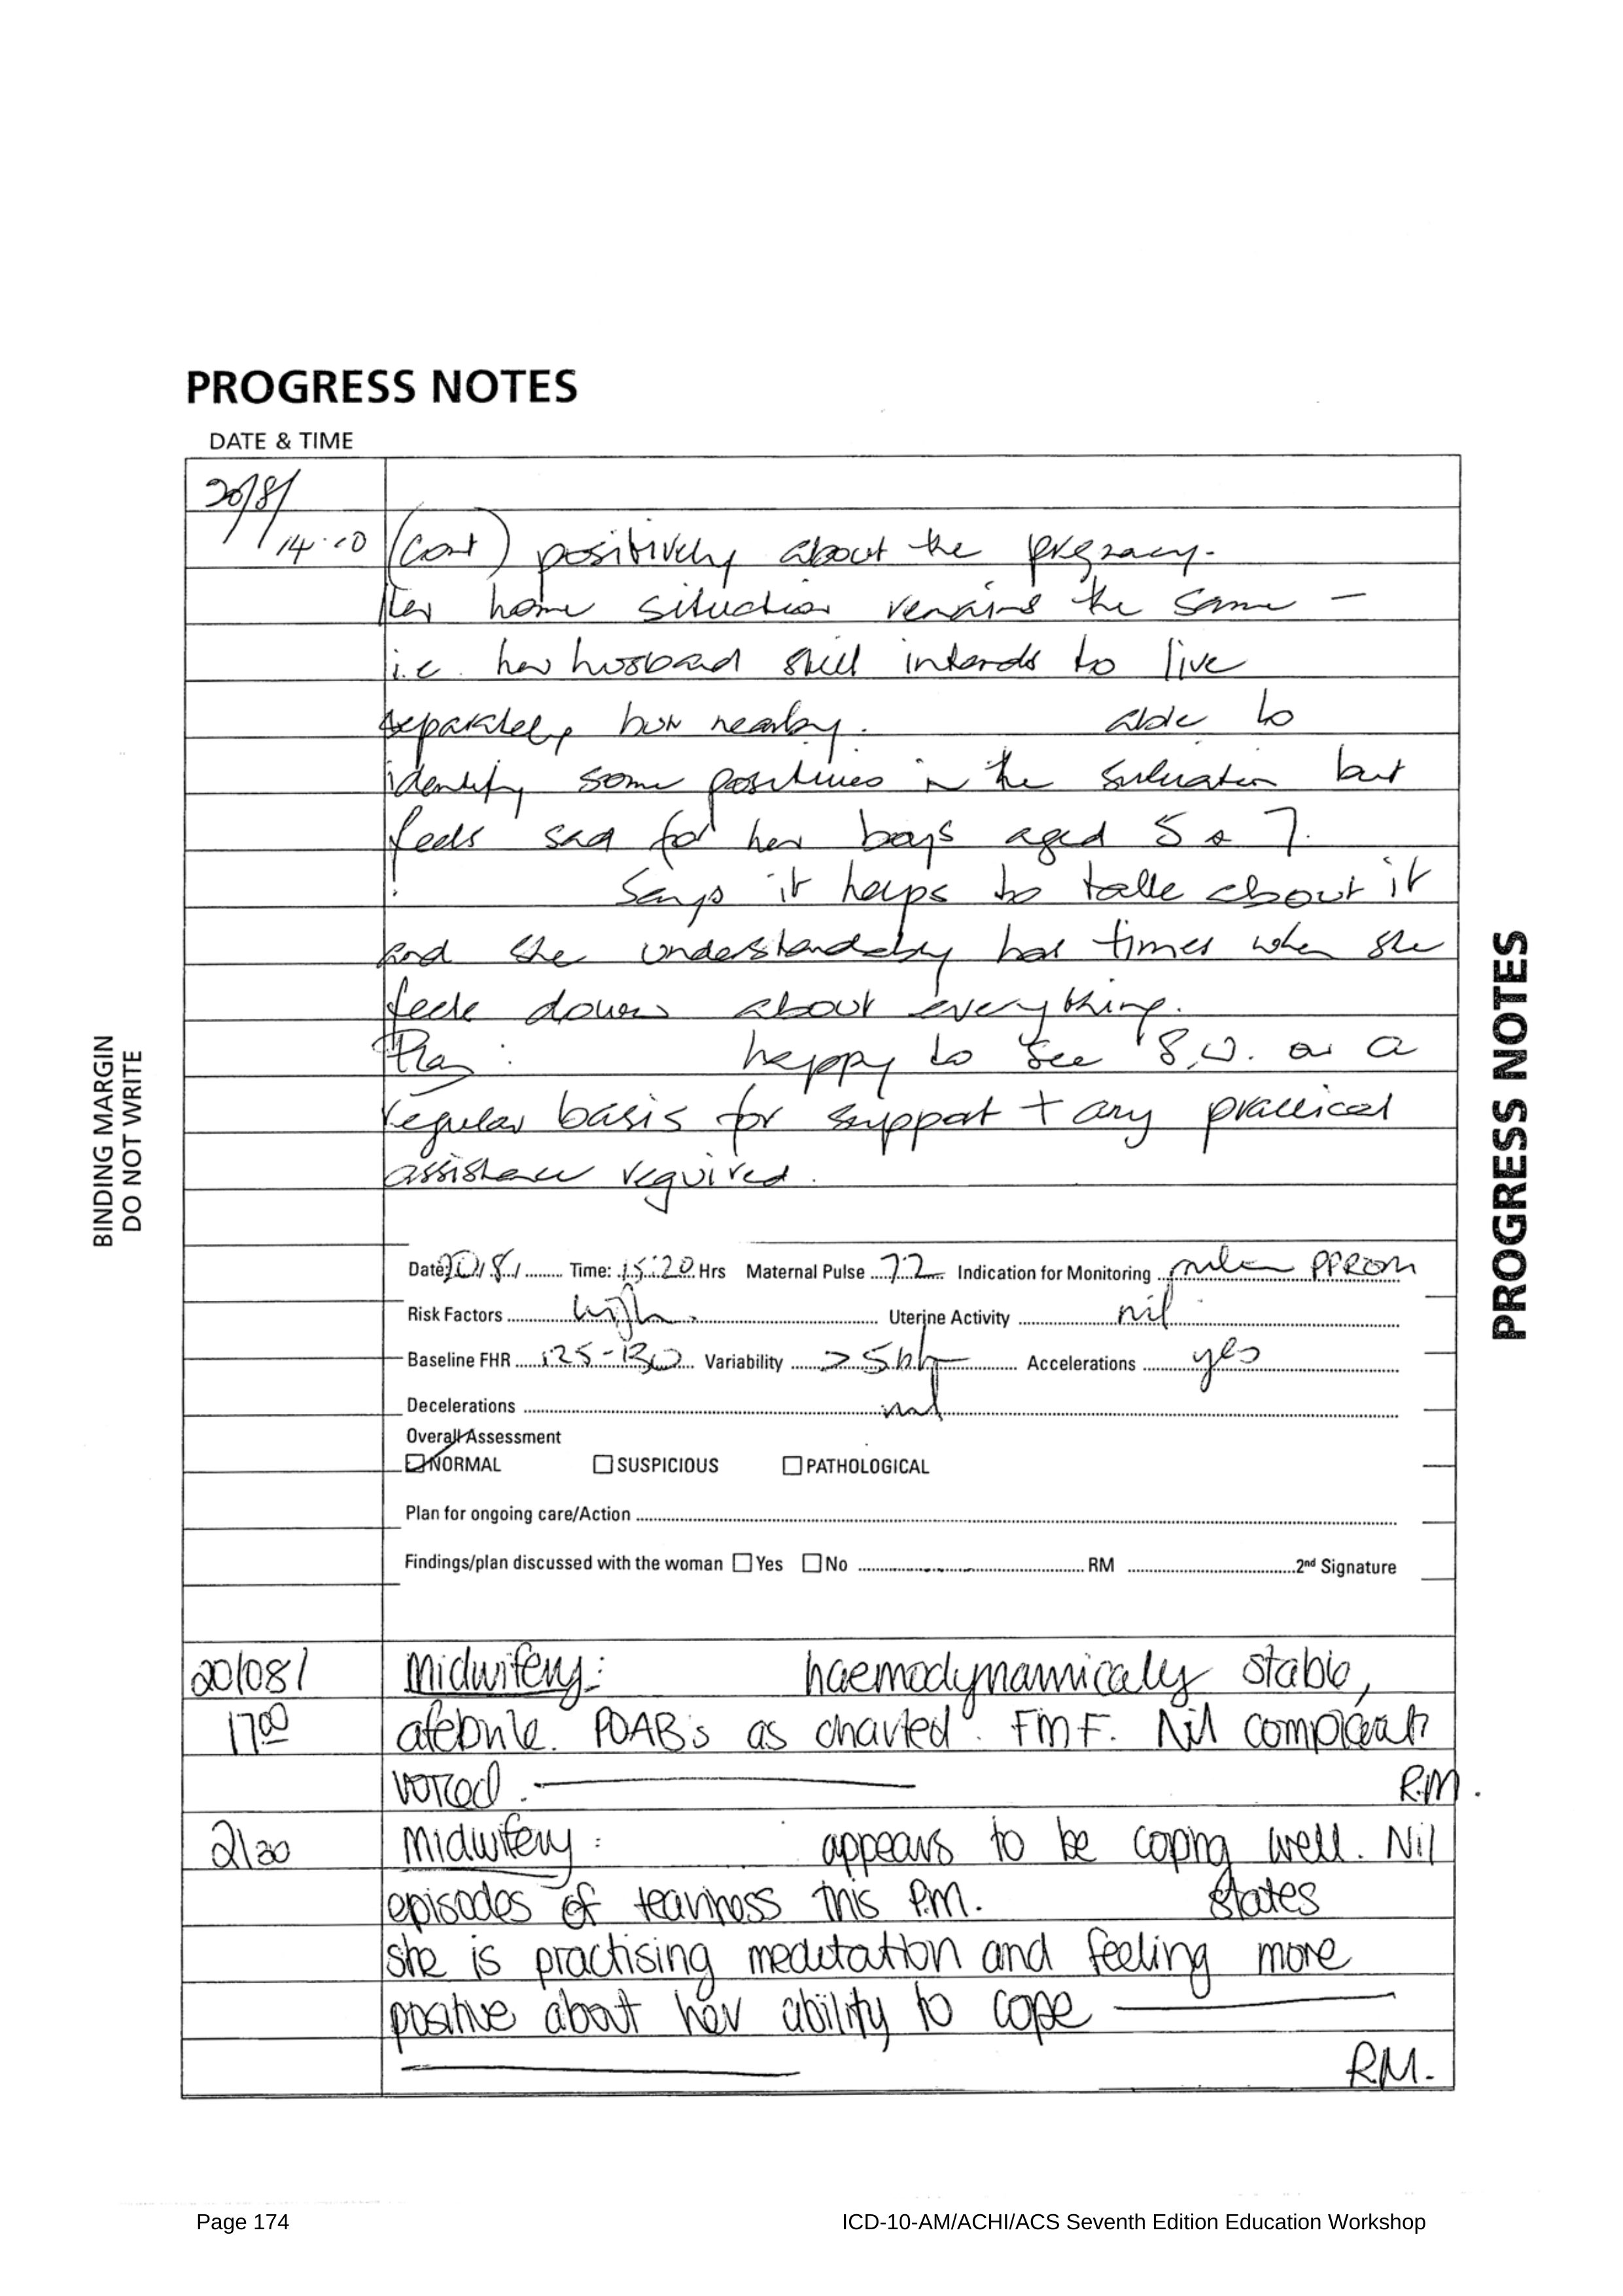 PROGRESS NOTES
DATE & TIME
20/8/
14.10 (cont) positively about the pregnacy.
Her home situation remains the same –
i.e. her husband still intends to live
separately but nearby. able to
identify some positives in the situation but
feels sad for her boys aged 5 & 7.
Says it helps to talk about it
and she understandably has times when she
feels down about everything.
Plan: happy to see S.W. on a
regular basis for support + any practical
assistance required.
Date 20/8/ Time: 15:20 Hrs Maternal Pulse 72 Indication for Monitoring PPROM
Risk Factors Uterine Activity nil
Baseline FHR 125-130 Variability >5 Accelerations yes
Decelerations
Overall Assessment
NORMAL SUSPICIOUS PATHOLOGICAL
Plan for ongoing care/Action
Findings/plan discussed with the woman Yes No RM 2nd Signature
20/08/ Midwifery: haemodynamically stable,
1700 afebrile. POAB's as charted. FMF. Nil complaints
voiced. R.M.
2130 Midwifery: appears to be coping well. Nil
episodes of teariness this P.M. states
she is practising meditation and feeling more
positive about her ability to cope
RM.
BINDING MARGIN
DO NOT WRITE
PROGRESS NOTES
Page 174 ICD-10-AM/ACHI/ACS Seventh Edition Education Workshop